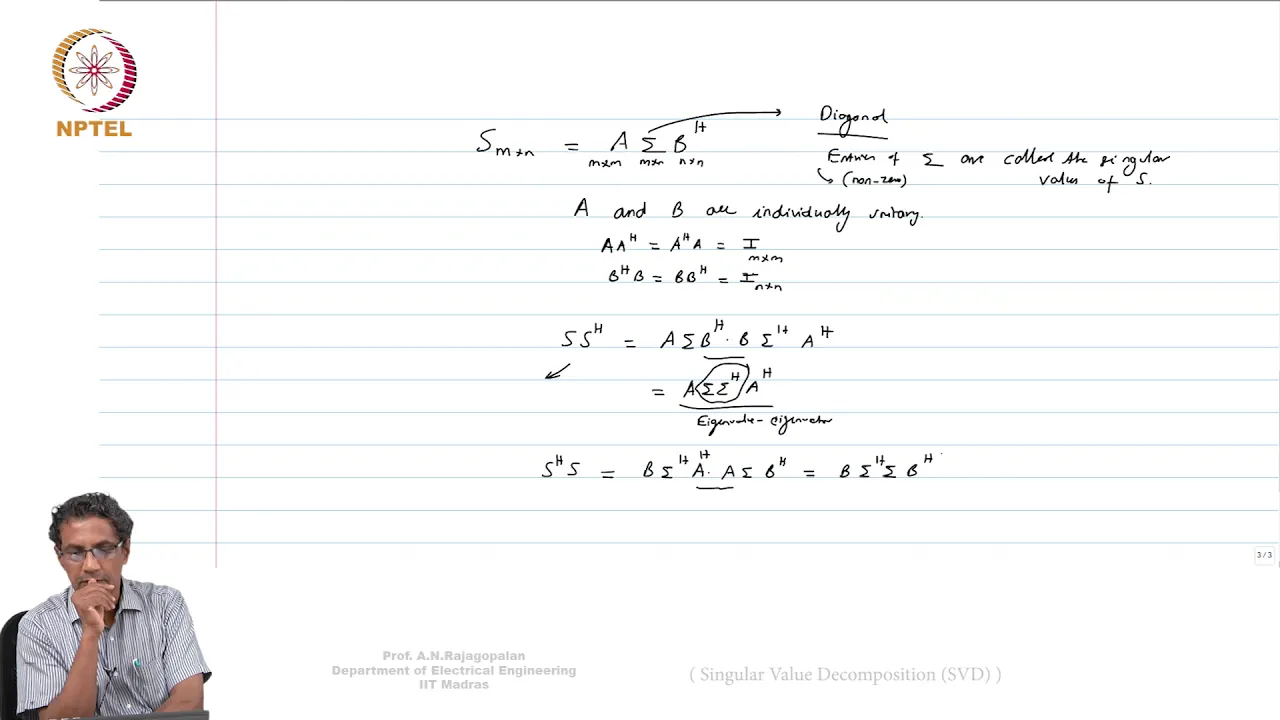 NPTEL
Diagonal
S m×n = A Σ B^H
m×m m×n n×n
Entries of Σ are called the singular
(non-zero) values of S.
A and B are individually unitary.
AA^H = A^H A = I m×m
B^H B = BB^H = I n×n
SS^H = A Σ B^H · B Σ^H A^H
= A ΣΣ^H A^H
Eigenvalue - eigenvector
S^H S = B Σ^H A^H · A Σ B^H = B Σ^H Σ B^H
3 / 3
Prof. A.N.Rajagopalan
Department of Electrical Engineering
IIT Madras
( Singular Value Decomposition (SVD) )